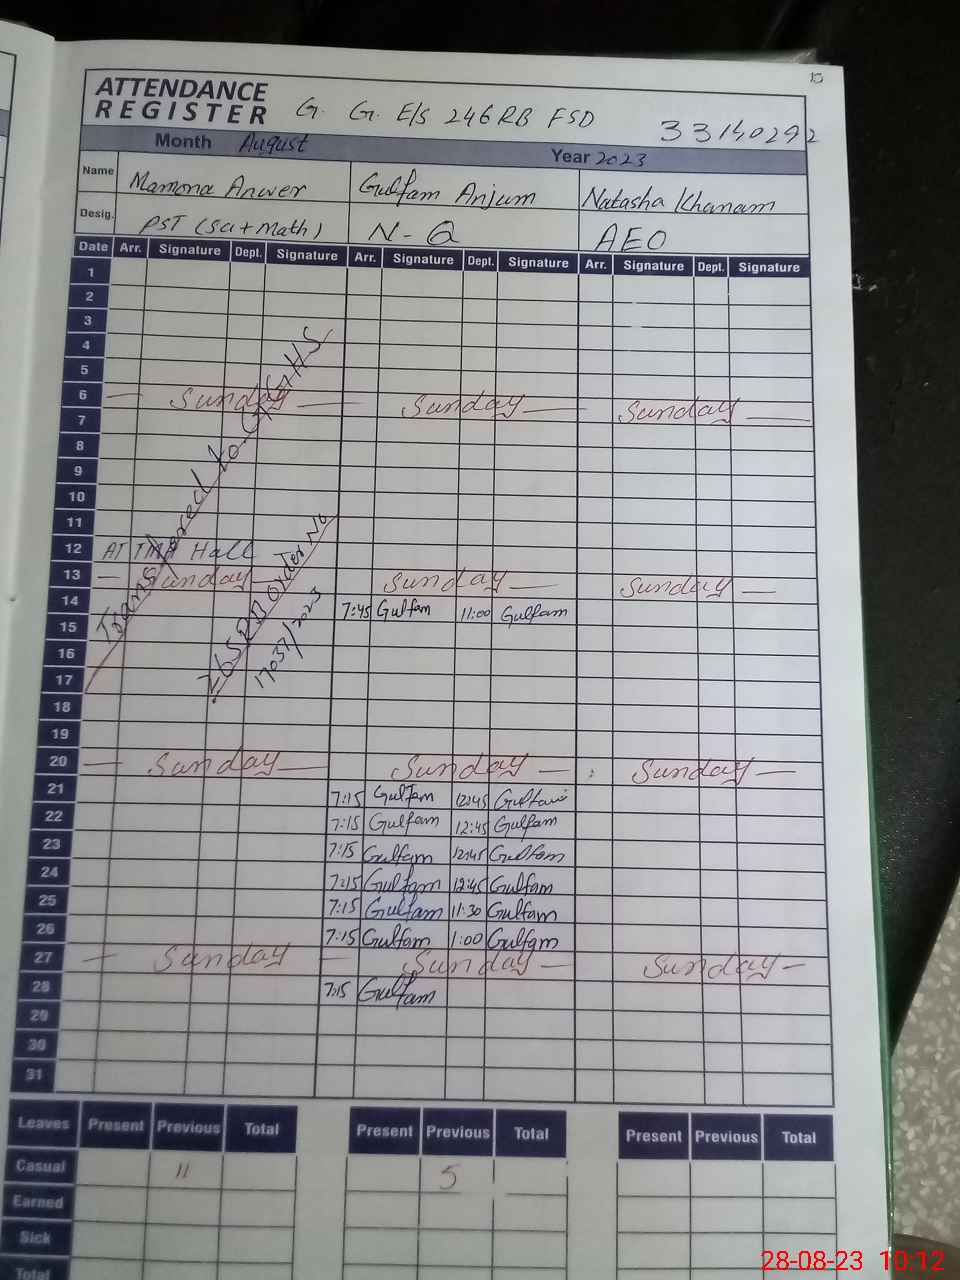 15
ATTENDANCE
REGISTER G. G. E/S 246RB FSD 33140292
Month August Year 2023
Name Mamona Anwer Gulfam Anjum Natasha Khanam
Desig. PST (Sci+Math) N-Q AEO
Date Arr. Signature Dept. Signature Arr. Signature Dept. Signature Arr. Signature Dept. Signature
1
2
3
4
5
6 Sunday Sunday Sunday
7
8
9
10
11
12 AT Hall
13 Sunday Sunday Sunday
14 7:45 Gulfam 11:00 Gulfam
15
16
17
Transfered to GGHS
265RB Order No
17037/2023
18
19
20 Sunday Sunday Sunday
21 7:15 Gulfam 12:45 Gulfam
22 7:15 Gulfam 12:45 Gulfam
23 7:15 Gulfam 12:45 Gulfam
24 7:15 Gulfam 12:45 Gulfam
25 7:15 Gulfam 11:30 Gulfam
26 7:15 Gulfam 1:00 Gulfam
27 Sunday Sunday Sunday
28 7:15 Gulfam
29
30
31
Leaves Present Previous Total Present Previous Total Present Previous Total
Casual 11 5
Earned
Sick
Total
28-08-23 10:12